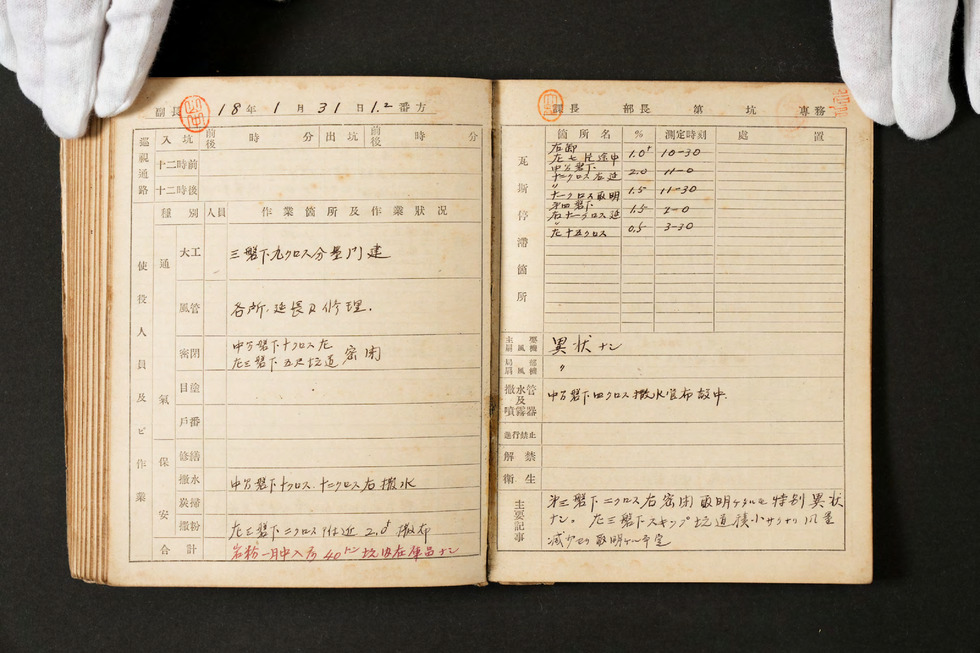 副長 18年 1月 31日 1.2番方
巡視通路 入坑 前後 時 分 出坑 前後 時 分
十二時前
十二時後
使役人員及ビ作業
種別 人員 作業箇所及作業狀况
通氣
大工 三盤下九クロス分量門建
風管 各所延長及修理.
密閉 中方盤下十クロス左
左三盤下五尺坑道 密閉
目塗
戶番
保安
修繕
撒水 中方盤下十クロス.十二クロス右撒水
炭掃
撒粉 左三盤下二クロス附近 2.0t 撒布
合計 岩粉一月中入荷 40トン 坑内在庫品ナシ
副長 部長 第 坑 専務
瓦斯停滯箇所
箇所名 % 測定時刻 處置
右卸
左七片途中 1.0t 10-30
中方盤下
十二クロス右延 2.0 11-0
〃
十一クロス取明 1.5 11-30
第四盤下
右十一クロス延 1.5 2-0
〃
左十五クロス 0.5 3-30
主要扇風機 異狀ナシ
局部扇風機 〃
撒水管及噴霧器 中方盤下四クロス撒水管布設中.
進行禁止
解禁
衛生
主要記事
第三盤下二クロス右密閉取明ケタルモ特別異狀
ナシ。左三盤下スキップ坑道狹小サナリ風量
減少セリ取明ケル予定